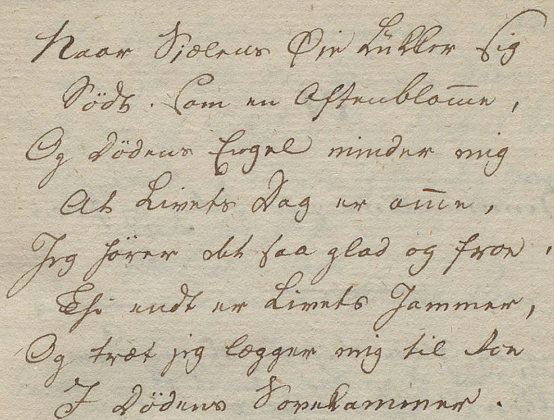 Naar Siælens Øie Lükker sig
Södt. Som en Aftenblom̅e,
Og Dödens Engel minder mig
At Livets Dag er om̅e,
Jeg hører det saa glad og froe,
Thi endt er Livets Jammer,
Og træt jeg lægger mig til Roe
I Dödens Sovekammer.